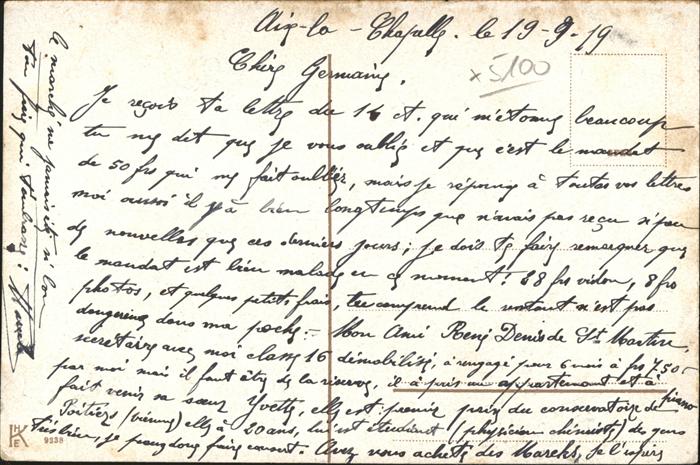 Aix-la-Chapelle. le 19-9-19
x 5100
Chère Germaine,
Je reçois ta lettre du 14 ct. qui m'étonne beaucoup
tu me dit que je vous oublie et que c'est le mandat
de 50 frs qui me fait oublier, mais je réponds à toutes vos lettres
moi aussi il y'a bien longtemps que n'avais pas reçu
de nouvelles que ces derniers jours; je dois te faire remarquer que
le mandat est bien malade en ce moment! 28 frs vidon, 8 frs
photos, et quelques petits frais, tu comprend le restant n'est pas
dangereux dans ma poche.- Mon Ami René Denis de St Martin,
secrétaire avec moi classe 16 démobilisé, à rengagé pour 6 mois à frs 7.50
par moi mai il faut être de la réserve, il à pris un appartement et à
fait venir sa sœur Yvette, elle est premier prix du conservatoire de piano
Poitiers (vienne) elle à 20 ans, lui est étudiant (physicien chimiste) de gens
très bien, je peux donc faire causent. Avez vous acheté des Marcks, je l'espère
le marché ne jamais été si bon
Ton frère qui t'embrasse:
HK
E
9238